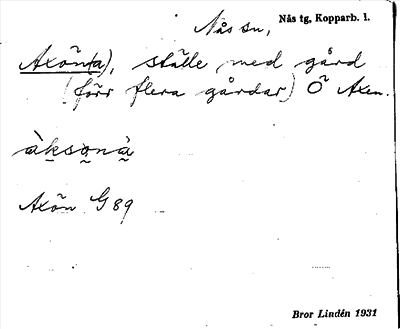 Nås sn, Nås tg, Kopparb. l.
Axön(a), ställe med gård
(förr flera gårdar) Ö Axen.
àksonà
Axön G 89
Bror Lindén 1931